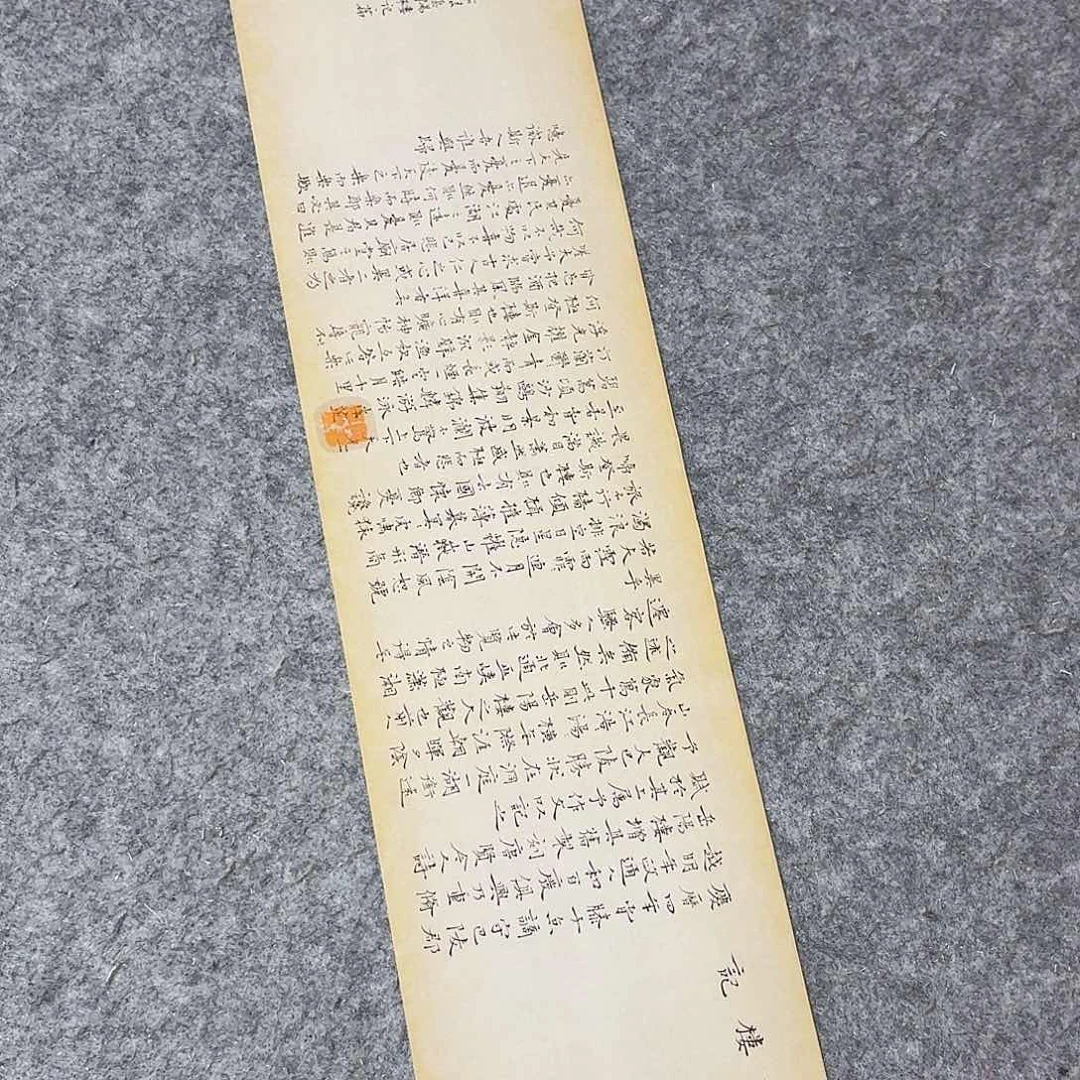 樓記
慶曆四年守滕子京謫守巴陵郡
越明年政通人和百廢俱興乃重脩
岳陽樓增其舊製刻唐賢今人詩
賦於其上屬予作文以記之
予觀夫巴陵勝狀在洞庭一湖銜遠
山吞長江浩浩湯湯橫無際涯朝暉夕陰
氣象萬千此則岳陽樓之大觀也前人
之述備矣然則北通巫峽南極瀟湘
遷客騷人多會於此覽物之情得無
異乎
若夫霪雨霏霏連月不開陰風怒號
濁浪排空日星隱耀山嶽潛形商
旅不行檣傾楫摧薄暮冥冥虎嘯猿
啼登斯樓也則有去國懷鄉憂讒
畏譏滿目蕭然感極而悲者也
至若春和景明波瀾不驚上下天光一
碧萬頃沙鷗翔集錦鱗游泳岸芷
汀蘭鬱鬱青青而或長煙一空皓月千里
浮光耀金靜影沉璧漁歌互答此樂
何極登斯樓也則有心曠神怡寵辱
皆忘把酒臨風其喜洋洋者矣
嗟夫予嘗求古仁人之心或異二者之為
何哉不以物喜不以己悲居廟堂之高則
憂其民處江湖之遠則憂其君是進
亦憂退亦憂然則何時而樂耶其必曰
先天下之憂而憂後天下之樂而樂歟
噫微斯人吾誰與歸